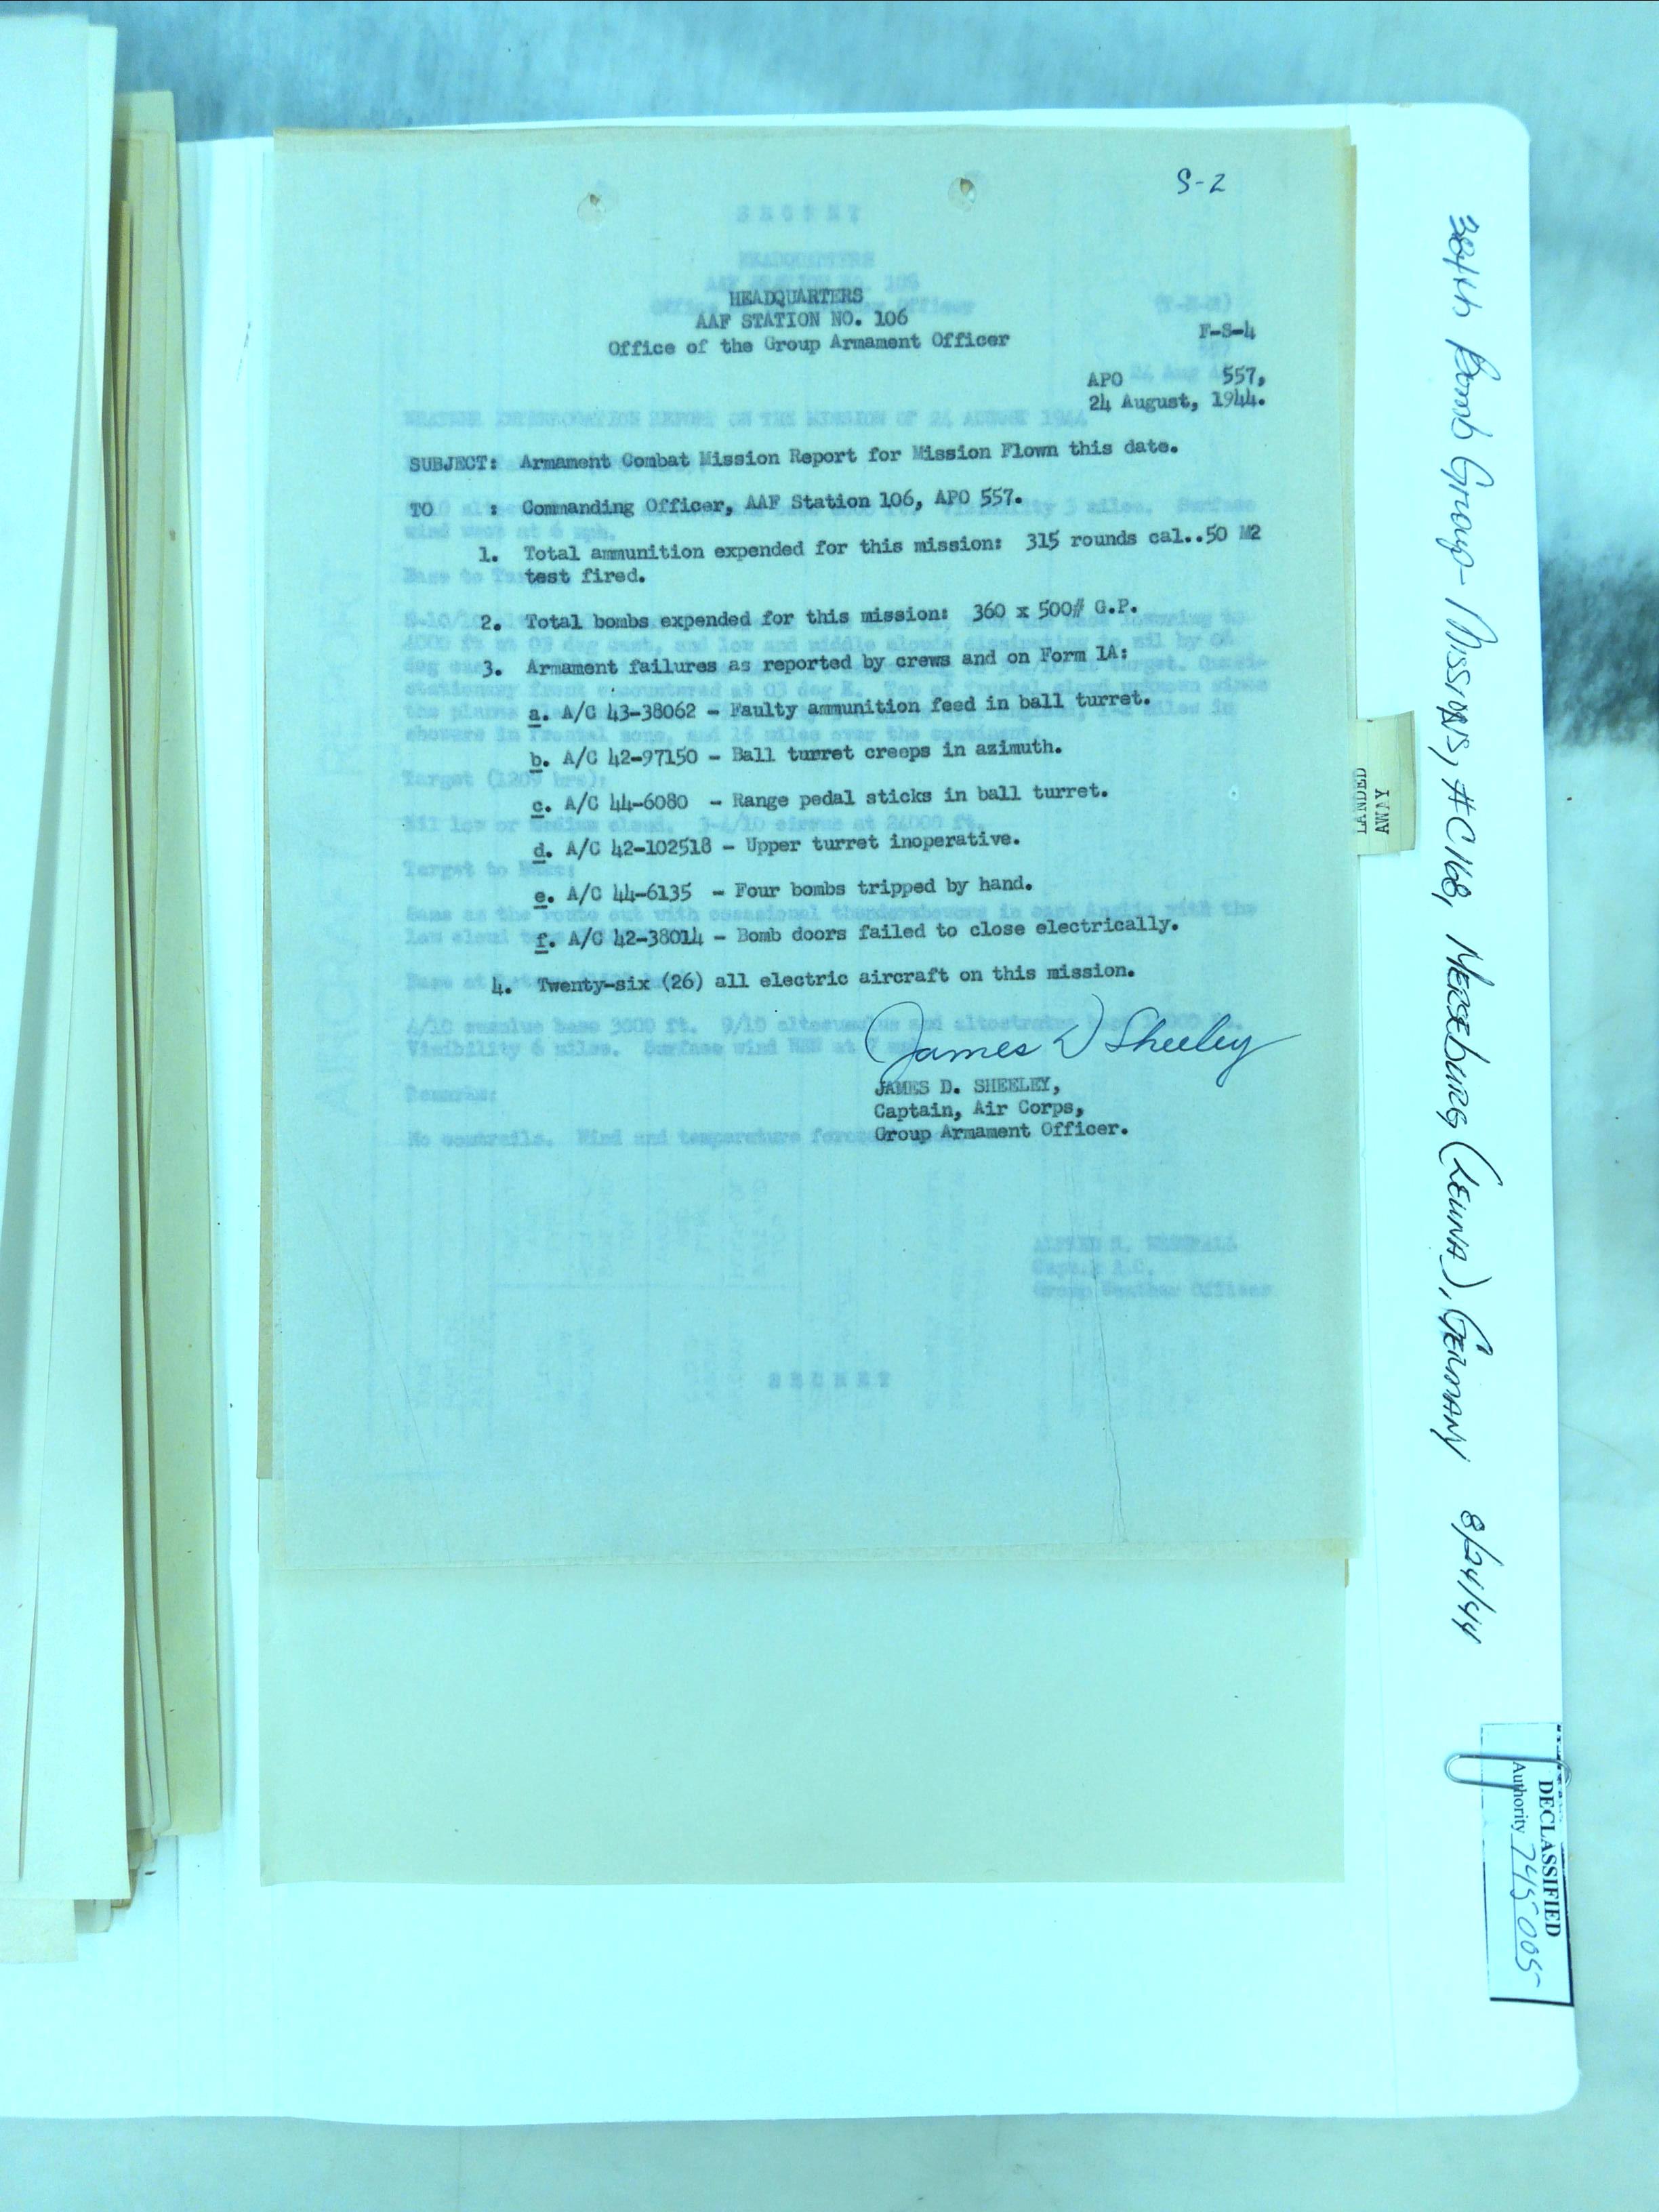 S-2
HEADQUARTERS
AAF STATION NO. 106
Office of the Group Armament Officer
F-S-4
APO 557,
24 August, 1944.
SUBJECT: Armament Combat Mission Report for Mission Flown this date.
TO : Commanding Officer, AAF Station 106, APO 557.
1. Total ammunition expended for this mission: 315 rounds cal..50 M2
test fired.
2. Total bombs expended for this mission: 360 x 500# G.P.
3. Armament failures as reported by crews and on Form 1A:
a. A/C 43-38062 - Faulty ammunition feed in ball turret.
b. A/C 42-97150 - Ball turret creeps in azimuth.
c. A/C 44-6080 - Range pedal sticks in ball turret.
d. A/C 42-102518 - Upper turret inoperative.
e. A/C 44-6135 - Four bombs tripped by hand.
f. A/C 42-38014 - Bomb doors failed to close electrically.
4. Twenty-six (26) all electric aircraft on this mission.
James D Sheeley
JAMES D. SHEELEY,
Captain, Air Corps,
Group Armament Officer.
LANDED
AWAY
384th Bomb Group - Missions, #C168, MERSEBURG (LEUNA), GERMANY 8/24/44
DECLASSIFIED
Authority 745005